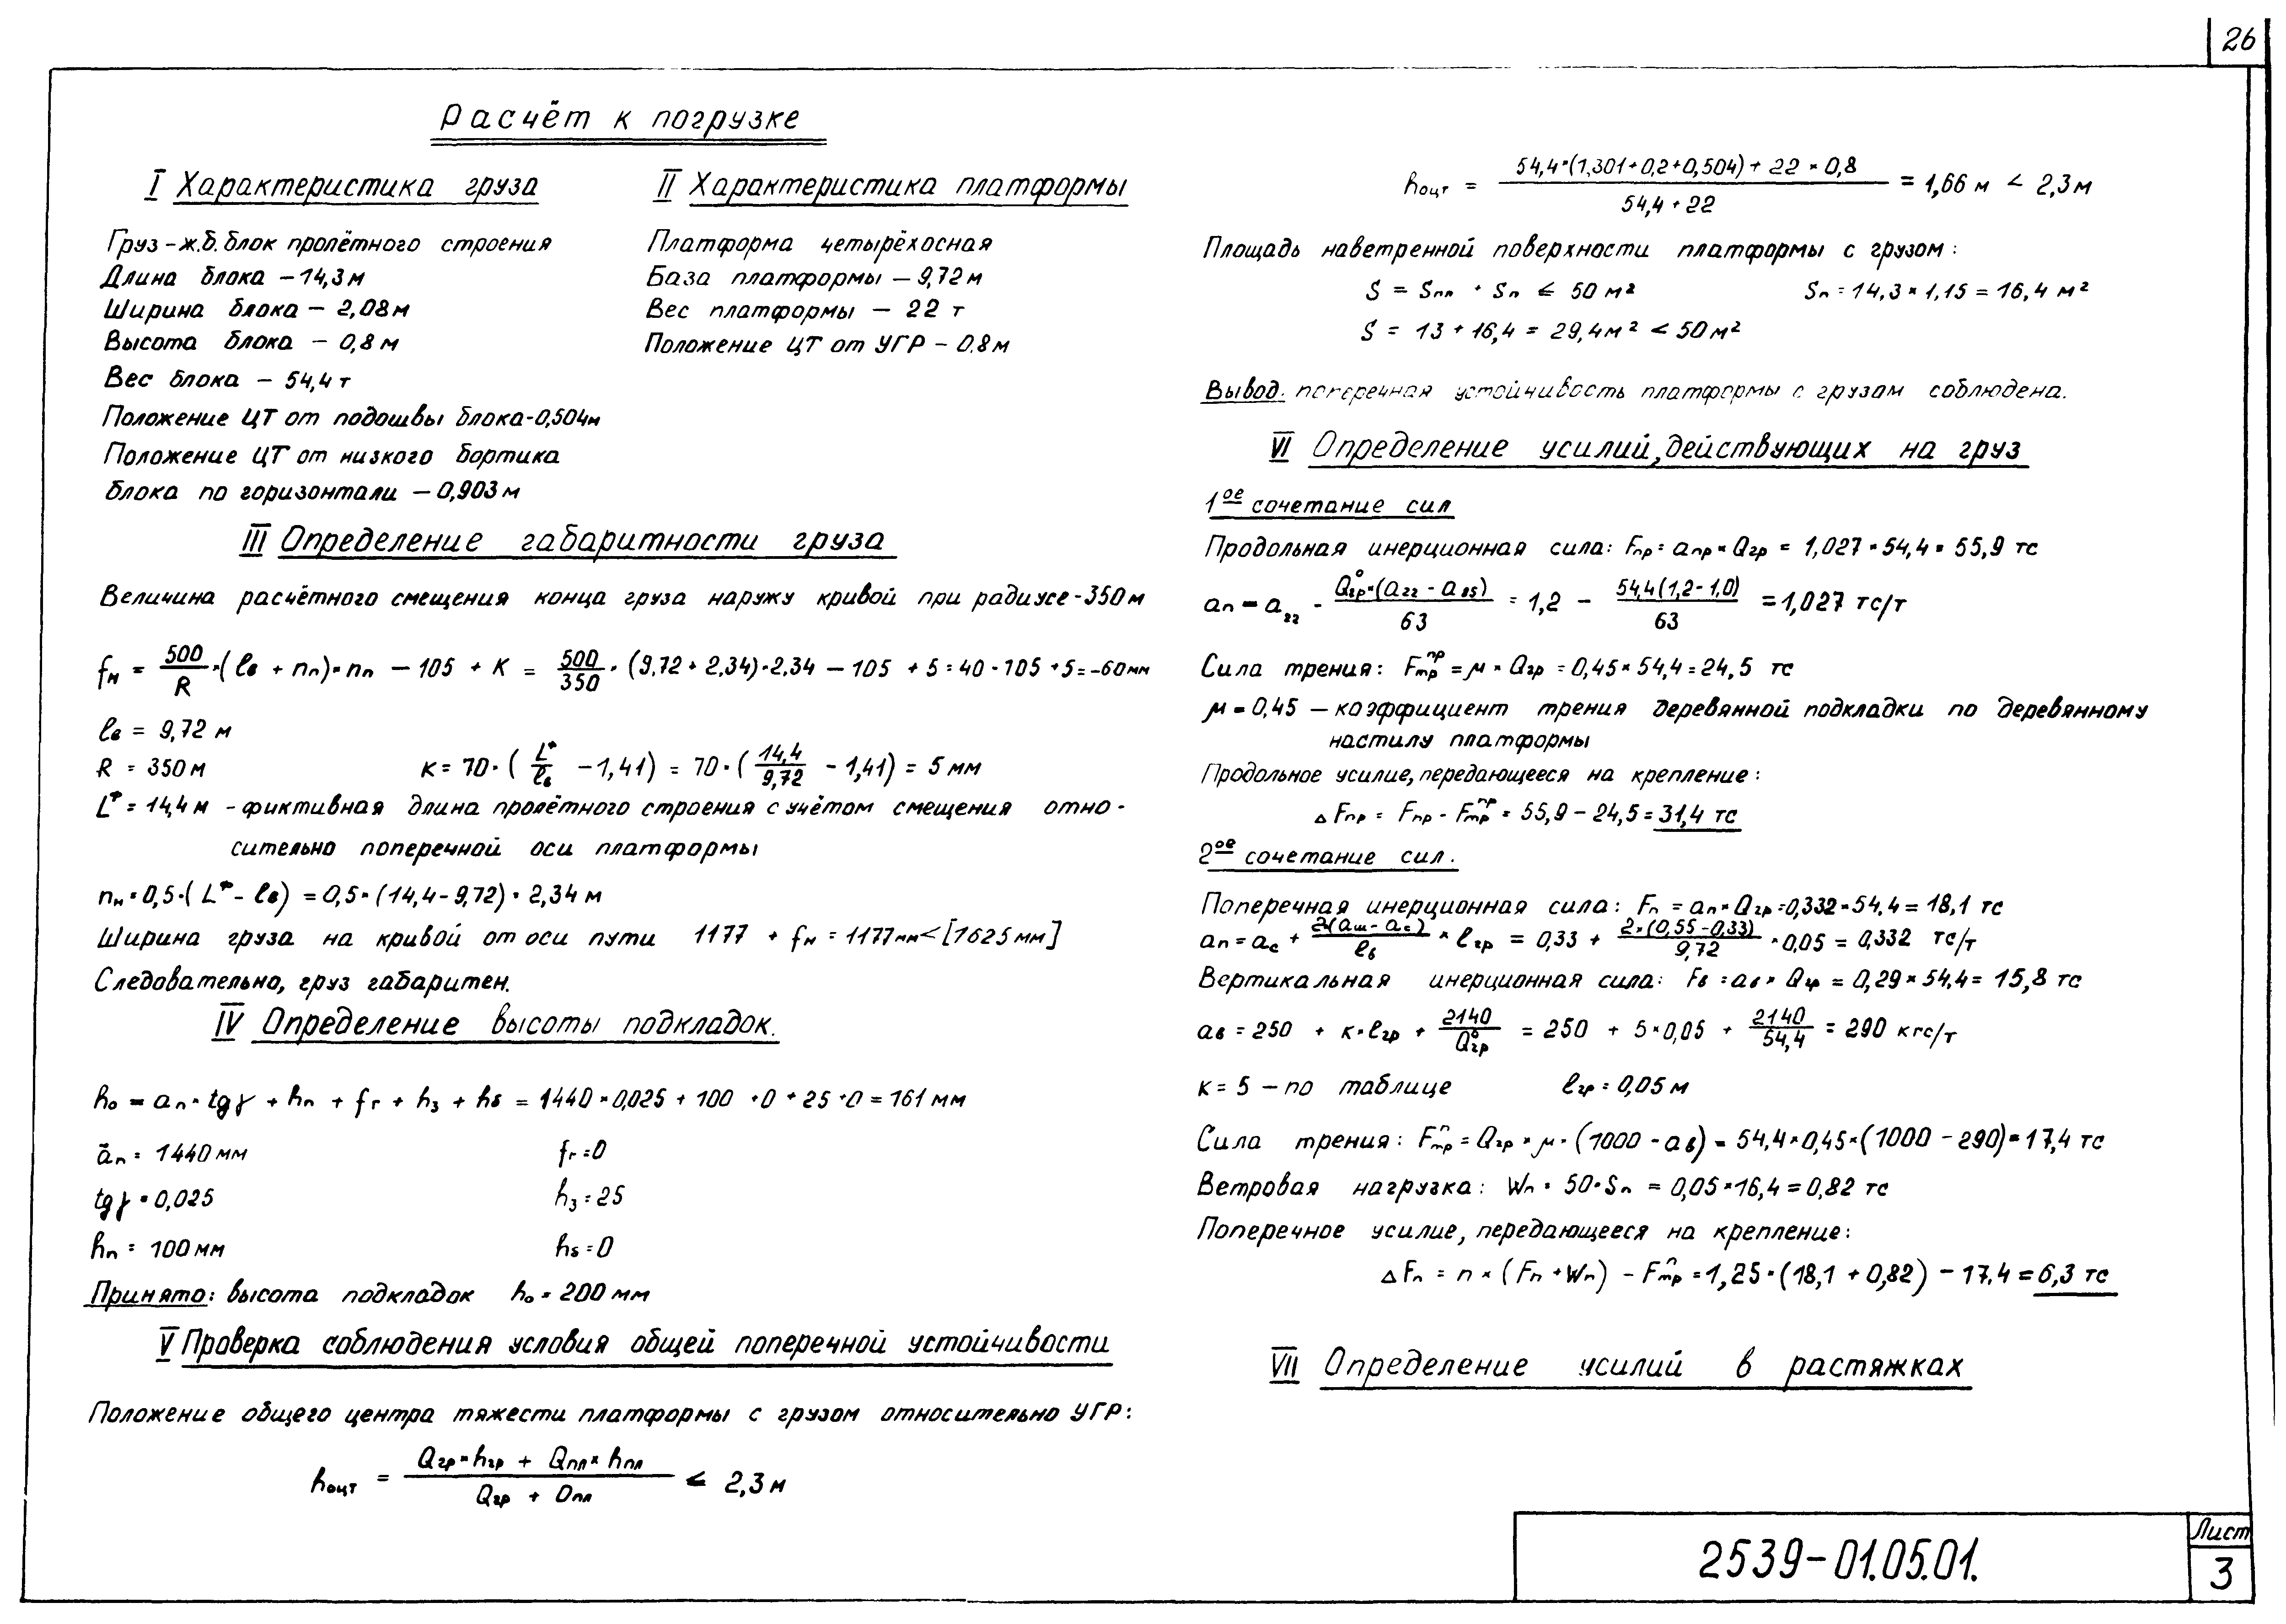 26
Расчёт к погрузке
I Характеристика груза
Груз - ж.б. блок пролётного строения
Длина блока - 14,3 м
Ширина блока - 2,08 м
Высота блока - 0,8 м
Вес блока - 54,4 т
Положение ЦТ от подошвы блока - 0,504 м
Положение ЦТ от низкого бортика
блока по горизонтали - 0,903 м
II Характеристика платформы
Платформа четырёхосная
База платформы - 9,72 м
Вес платформы - 22 т
Положение ЦТ от УГР - 0,8 м
III Определение габаритности груза
Величина расчётного смещения конца груза наружу кривой при радиусе - 350 м
fн = 500/R · (ℓв + nп) · nп - 105 + К = 500/350 · (9,72 + 2,34) · 2,34 - 105 + 5 = 40 - 105 + 5 = -60 мм
ℓв = 9,72 м
R = 350 м
К = 70 · (Lф/ℓв - 1,41) = 70 · (14,4/9,72 - 1,41) = 5 мм
Lф = 14,4 м - фиктивная длина пролётного строения с учётом смещения отно-
сительно поперечной оси платформы
nн = 0,5 · (Lф - ℓв) = 0,5 · (14,4 - 9,72) = 2,34 м
Ширина груза на кривой от оси пути 1177 + fн = 1177 мм < [1625 мм]
Следовательно, груз габаритен.
IV Определение высоты подкладок.
hо = aп · tgγ + hп + fг + hз + hб = 1440 × 0,025 + 100 + 0 + 25 + 0 = 161 мм
aп = 1440 мм
fг = 0
tgγ = 0,025
hз = 25
hп = 100 мм
hб = 0
Принято: высота подкладок hо = 200 мм
V Проверка соблюдения условия общей поперечной устойчивости
Положение общего центра тяжести платформы с грузом относительно УГР:
hоцт = (Qгр × hгр + Qпл × hпл)/(Qгр + Qпл) ≤ 2,3 м
hоцт = (54,4 × (1,301 + 0,2 + 0,504) + 22 × 0,8)/(54,4 + 22) = 1,66 м < 2,3 м
Площадь наветренной поверхности платформы с грузом:
S = Sпл + Sп ≤ 50 м² Sп = 14,3 × 1,15 = 16,4 м²
S = 13 + 16,4 = 29,4 м² < 50 м²
Вывод. поперечная устойчивость платформы с грузом соблюдена.
VI Определение усилий, действующих на груз
1ое сочетание сил
Продольная инерционная сила: Fпр = aпр × Qгр = 1,027 × 54,4 = 55,9 тс
aп = a22 - Q°гр × (a22 - a85)/63 = 1,2 - 54,4(1,2 - 1,0)/63 = 1,027 тс/т
Сила трения: Fпртр = μ × Qгр = 0,45 × 54,4 = 24,5 тс
μ = 0,45 - коэффициент трения деревянной подкладки по деревянному
настилу платформы
Продольное усилие, передающееся на крепление:
ΔFпр = Fпр - Fпртр = 55,9 - 24,5 = 31,4 тс
2ое сочетание сил.
Поперечная инерционная сила: Fп = aп × Qгр = 0,332 × 54,4 = 18,1 тс
aп = aс + 2(aш - aс)/ℓв × ℓгр = 0,33 + 2 × (0,55 - 0,33)/9,72 × 0,05 = 0,332 тс/т
Вертикальная инерционная сила: Fв = aв × Qгр = 0,29 × 54,4 = 15,8 тс
aв = 250 + К × ℓгр + 2140/Q°гр = 250 + 5 × 0,05 + 2140/54,4 = 290 кгс/т
К = 5 - по таблице ℓгр = 0,05 м
Сила трения: Fптр = Qгр × μ · (1000 - aв) = 54,4 × 0,45 × (1000 - 290) = 17,4 тс
Ветровая нагрузка: Wп = 50 · Sп = 0,05 × 16,4 = 0,82 тс
Поперечное усилие, передающееся на крепление:
ΔFп = n × (Fп + Wп) - Fптр = 1,25 · (18,1 + 0,82) - 17,4 = 6,3 тс
VII Определение усилий в растяжках
2539-01.05.01.
Лист
3